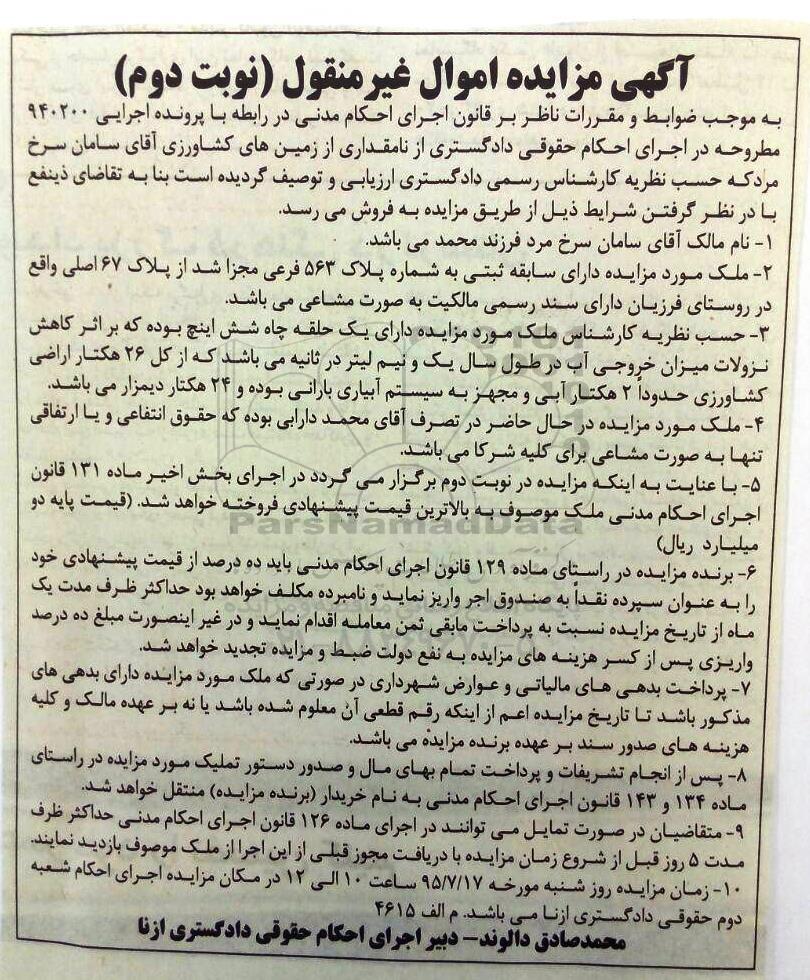 آگهی مزایده اموال غیرمنقول (نوبت دوم)
به موجب ضوابط و مقررات ناظر بر قانون اجرای احکام مدنی در رابطه با پرونده اجرایی ۹۴۰۲۰۰
مطروحه در اجرای احکام حقوقی دادگستری از نامقداری از زمین های کشاورزی آقای سامان سرخ
مردکه حسب نظریه کارشناس رسمی دادگستری ارزیابی و توصیف گردیده است بنا به تقاضای ذینفع
با در نظر گرفتن شرایط ذیل از طریق مزایده به فروش می رسد.
۱- نام مالک آقای سامان سرخ مرد فرزند محمد می باشد.
۲- ملک مورد مزایده دارای سابقه ثبتی به شماره پلاک ۵۶۳ فرعی مجزا شد از پلاک ۶۷ اصلی واقع
در روستای فرزیان دارای سند رسمی مالکیت به صورت مشاعی می باشد.
۳- حسب نظریه کارشناس ملک مورد مزایده دارای یک حلقه چاه شش اینچ بوده که بر اثر کاهش
نزولات میزان خروجی آب در طول سال یک و نیم لیتر در ثانیه می باشد که از کل ۲۶ هکتار اراضی
کشاورزی حدوداً ۲ هکتار آبی و مجهز به سیستم آبیاری بارانی بوده و ۲۴ هکتار دیمزار می باشد.
۴- ملک مورد مزایده در حال حاضر در تصرف آقای محمد دارابی بوده که حقوق انتفاعی و یا ارتفاقی
تنها به صورت مشاعی برای کلیه شرکا می باشد.
۵- با عنایت به اینکه مزایده در نوبت دوم برگزار می گردد در اجرای بخش اخیر ماده ۱۳۱ قانون
اجرای احکام مدنی ملک موصوف به بالاترین قیمت پیشنهادی فروخته خواهد شد. (قیمت پایه دو
میلیارد ریال)
ParsNamadData
۶- برنده مزایده در راستای ماده ۱۲۹ قانون اجرای احکام مدنی باید ده درصد از قیمت پیشنهادی خود
را به عنوان سپرده نقداً به صندوق اجر واریز نماید و نامبرده مکلف خواهد بود حداکثر ظرف مدت یک
ماه از تاریخ مزایده نسبت به پرداخت مابقی ثمن معامله اقدام نماید و در غیر اینصورت مبلغ ده درصد
واریزی پس از کسر هزینه های مزایده به نفع دولت ضبط و مزایده تجدید خواهد شد.
۷- پرداخت بدهی های مالیاتی و عوارض شهرداری در صورتی که ملک مورد مزایده دارای بدهی های
مذکور باشد تا تاریخ مزایده اعم از اینکه رقم قطعی آن معلوم شده باشد یا نه بر عهده مالک و کلیه
هزینه های صدور سند بر عهده برنده مزایده می باشد.
۸- پس از انجام تشریفات و پرداخت تمام بهای مال و صدور دستور تملیک مورد مزایده در راستای
ماده ۱۳۴ و ۱۴۳ قانون اجرای احکام مدنی به نام خریدار (برنده مزایده) منتقل خواهد شد.
۹- متقاضیان در صورت تمایل می توانند در اجرای ماده ۱۲۶ قانون اجرای احکام مدنی حداکثر ظرف
مدت ۵ روز قبل از شروع زمان مزایده با دریافت مجوز قبلی از این اجرا از ملک موصوف بازدید نمایند.
۱۰- زمان مزایده روز شنبه مورخه ۹۵/۷/۱۷ ساعت ۱۰ الی ۱۲ در مکان مزایده اجرای احکام شعبه
دوم حقوقی دادگستری ازنا می باشد. م الف ۴۶۱۵
محمدصادق دالوند- دبیر اجرای احکام حقوقی دادگستری ازنا